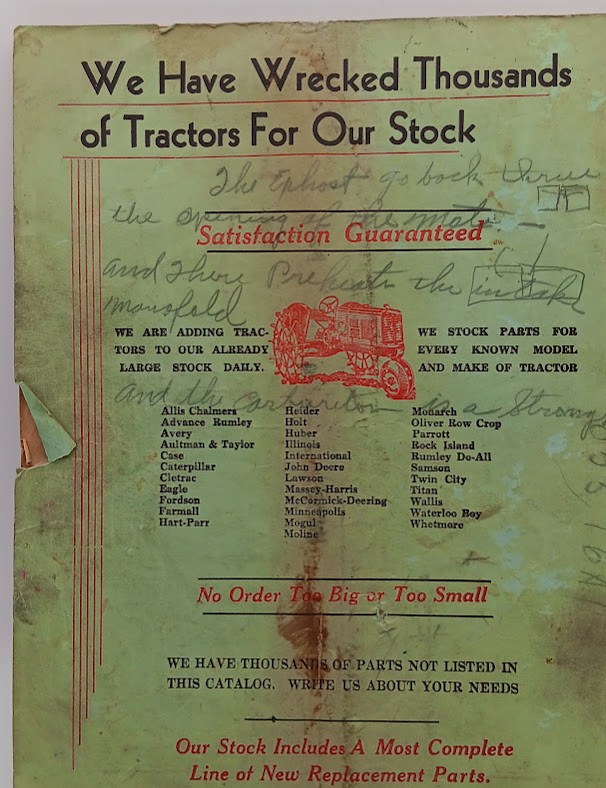 We Have Wrecked Thousands
of Tractors For Our Stock
The Exhost go back threw
the opening of the
Satisfaction Guaranteed
and There Preheats the intake
Manofold
WE ARE ADDING TRAC-
TORS TO OUR ALREADY
LARGE STOCK DAILY.
WE STOCK PARTS FOR
EVERY KNOWN MODEL
AND MAKE OF TRACTOR
and the carburetor is a Strong
Allis Chalmers
Advance Rumley
Avery
Aultman & Taylor
Case
Caterpillar
Cletrac
Eagle
Fordson
Farmall
Hart-Parr
Heider
Holt
Huber
Illinois
International
John Deere
Lawson
Massey-Harris
McCormick-Deering
Minneapolis
Mogul
Moline
Monarch
Oliver Row Crop
Parrott
Rock Island
Rumley Do-All
Samson
Twin City
Titan
Wallis
Waterloo Boy
Whetmore
No Order Too Big or Too Small
WE HAVE THOUSANDS OF PARTS NOT LISTED IN
THIS CATALOG. WRITE US ABOUT YOUR NEEDS
Our Stock Includes A Most Complete
Line of New Replacement Parts.